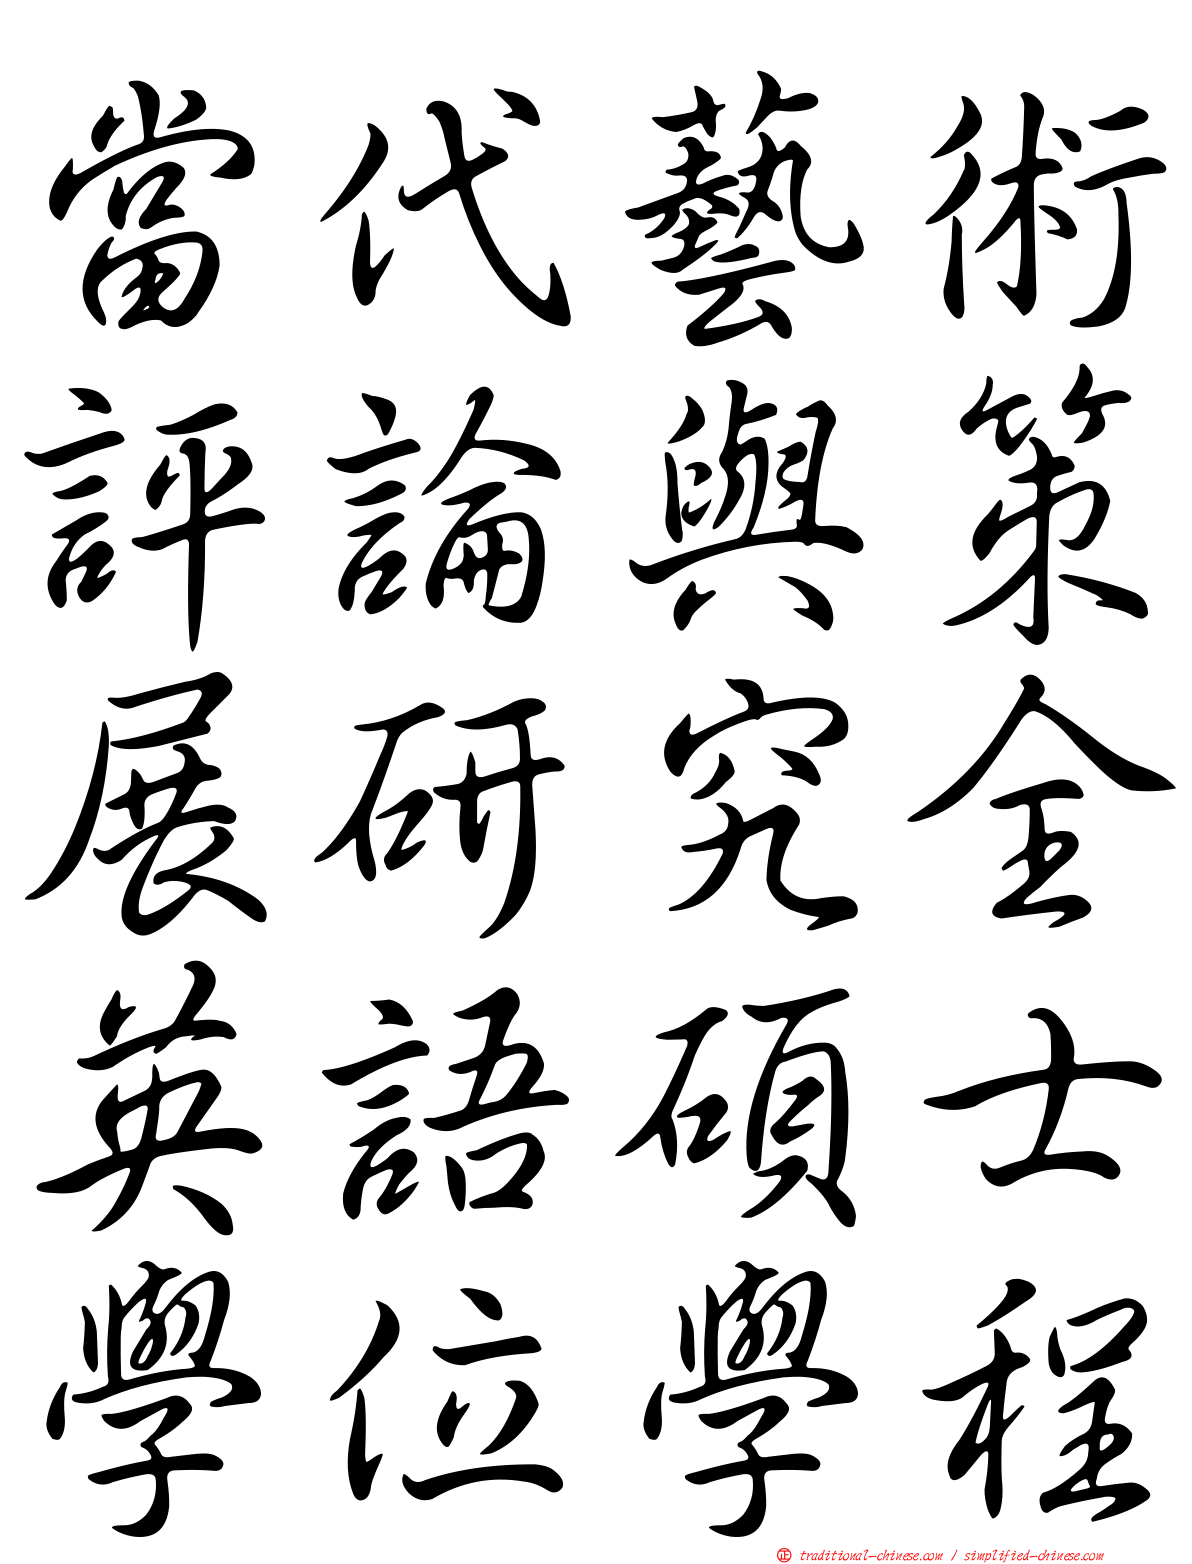 當代藝術
評論與策
展研究全
英語碩士
學位學程
正 traditional-chinese.com / simplified-chinese.com